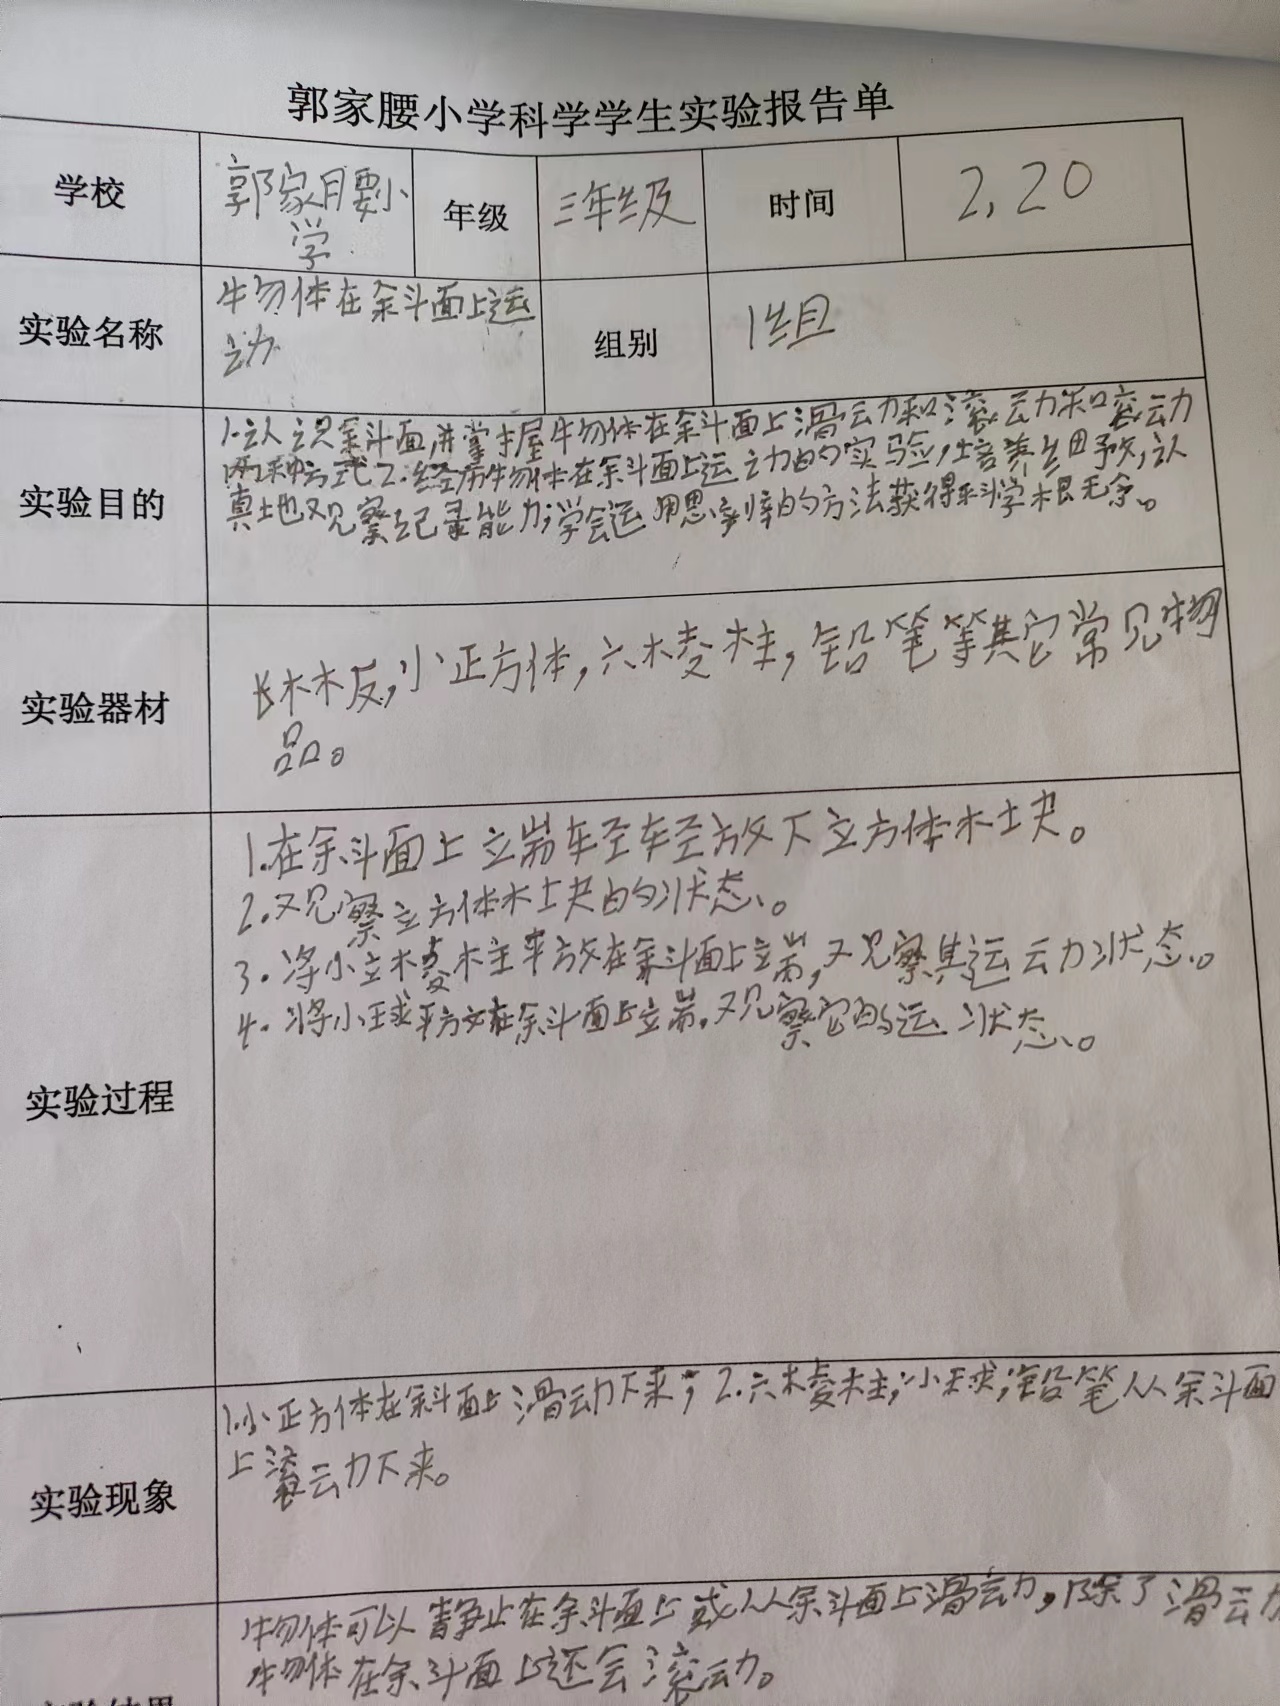 郭家腰小学科学学生实验报告单
学校
郭家腰小
学
年级
三年级
时间
2,20
实验名称
物体在斜面上运
动
组别
1组
实验目的
1.认识斜面,并掌握物体在斜面上滑动和滚动和滚动
两种方式2.经历物体在斜面上运动的实验,培养细致,认
真地观察记录能力;学会运用思辩的方法获得科学概念。
实验器材
长木板,小正方体,六棱柱,铅笔等其它常见物
品。
实验过程
1.在斜面上立端轻轻放下立方体木块。
2.观察立方体木块的状态。
3.将小立棱柱平放在斜面上立端,观察其运动状态。
4.将小球平放在斜面上立端,观察它的运状态。
实验现象
1.小正方体在斜面上滑动下来;2.六棱柱;小球;铅笔从斜面
上滚动下来。
物体可以静止在斜面上或从斜面上滑动,除了滑动
物体在斜面上还会滚动。
实验结果